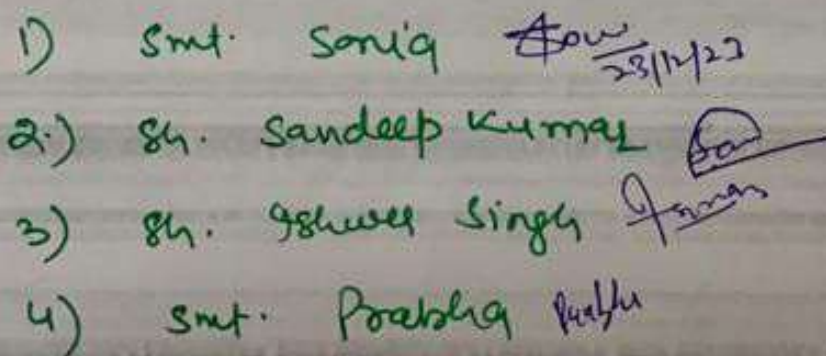 1) Smt. Sonia 23/12/23
2.) Sh. Sandeep Kumar
3) Sh. Ishwer Singh
4) Smt. Prabha Prabha